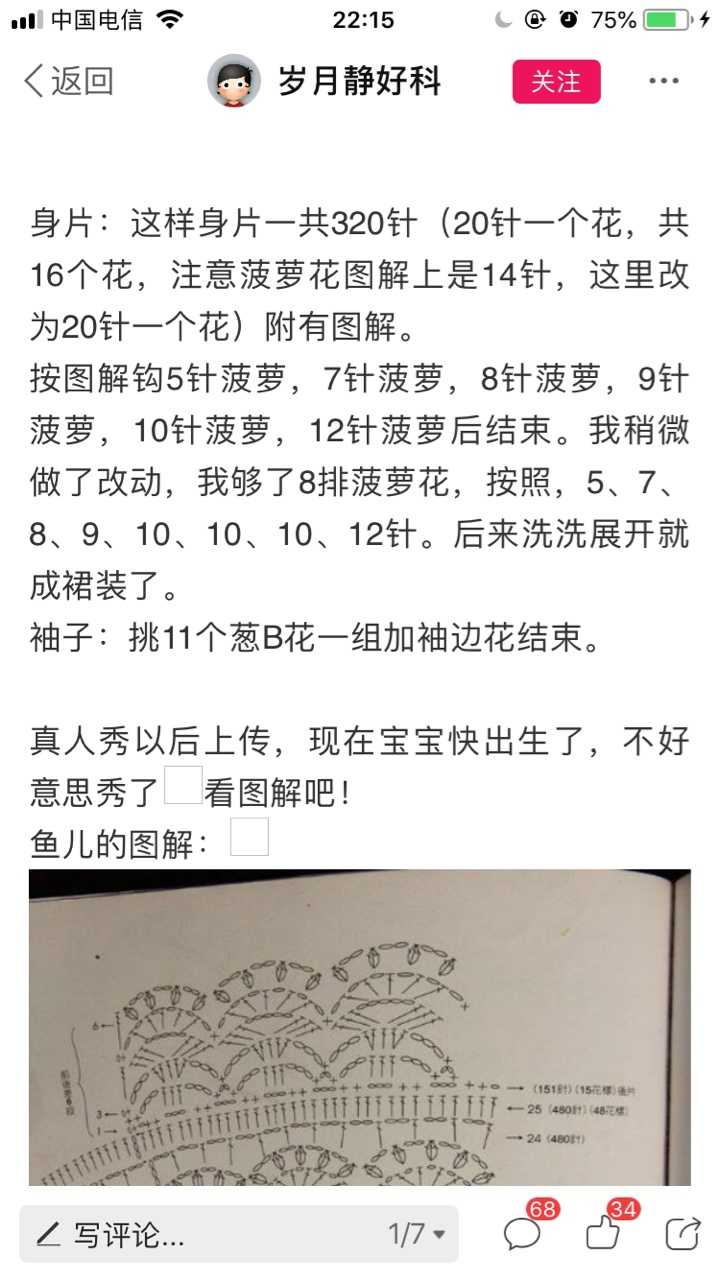 中国电信 22:15 75%
返回 岁月静好科 关注
身片：这样身片一共320针（20针一个花，共
16个花，注意菠萝花图解上是14针，这里改
为20针一个花）附有图解。
按图解钩5针菠萝，7针菠萝，8针菠萝，9针
菠萝，10针菠萝，12针菠萝后结束。我稍微
做了改动，我够了8排菠萝花，按照，5、7、
8、9、10、10、10、12针。后来洗洗展开就
成裙装了。
袖子：挑11个葱B花一组加袖边花结束。
真人秀以后上传，现在宝宝快出生了，不好
意思秀了看图解吧！
鱼儿的图解：
6
3
1
(151針)(15花樣)後片
25 (480針)(48花樣)
24 (480針)
写评论... 1/7 68 34